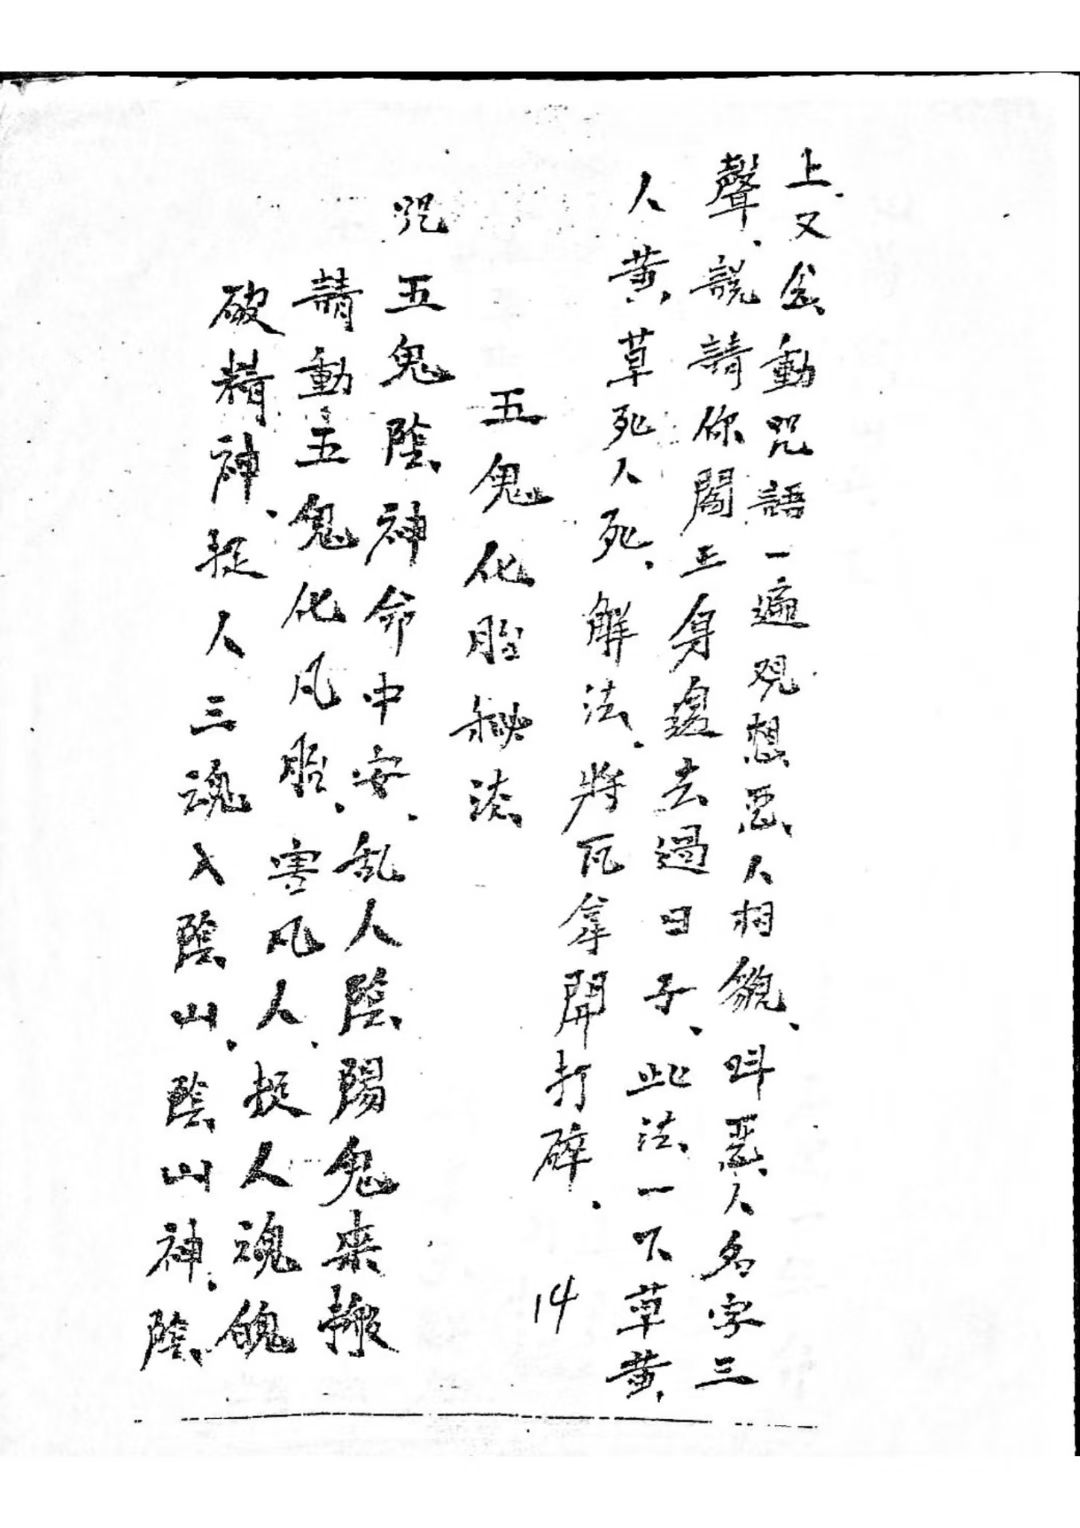 上.又念動咒語一遍观想恶人相貌、叫惡人名字三
聲、說請你閻王身邊去過日子、此法一下草黄
人黄、草死人死、解法、將瓦拿開打碎.
14
五鬼化胎秘法
咒五鬼陰神命中安、乱人陰陽鬼来
請動五鬼化凡胎、害凡人、捉人魂魄
破精神、捉人三魂入陰山、陰山神、陰